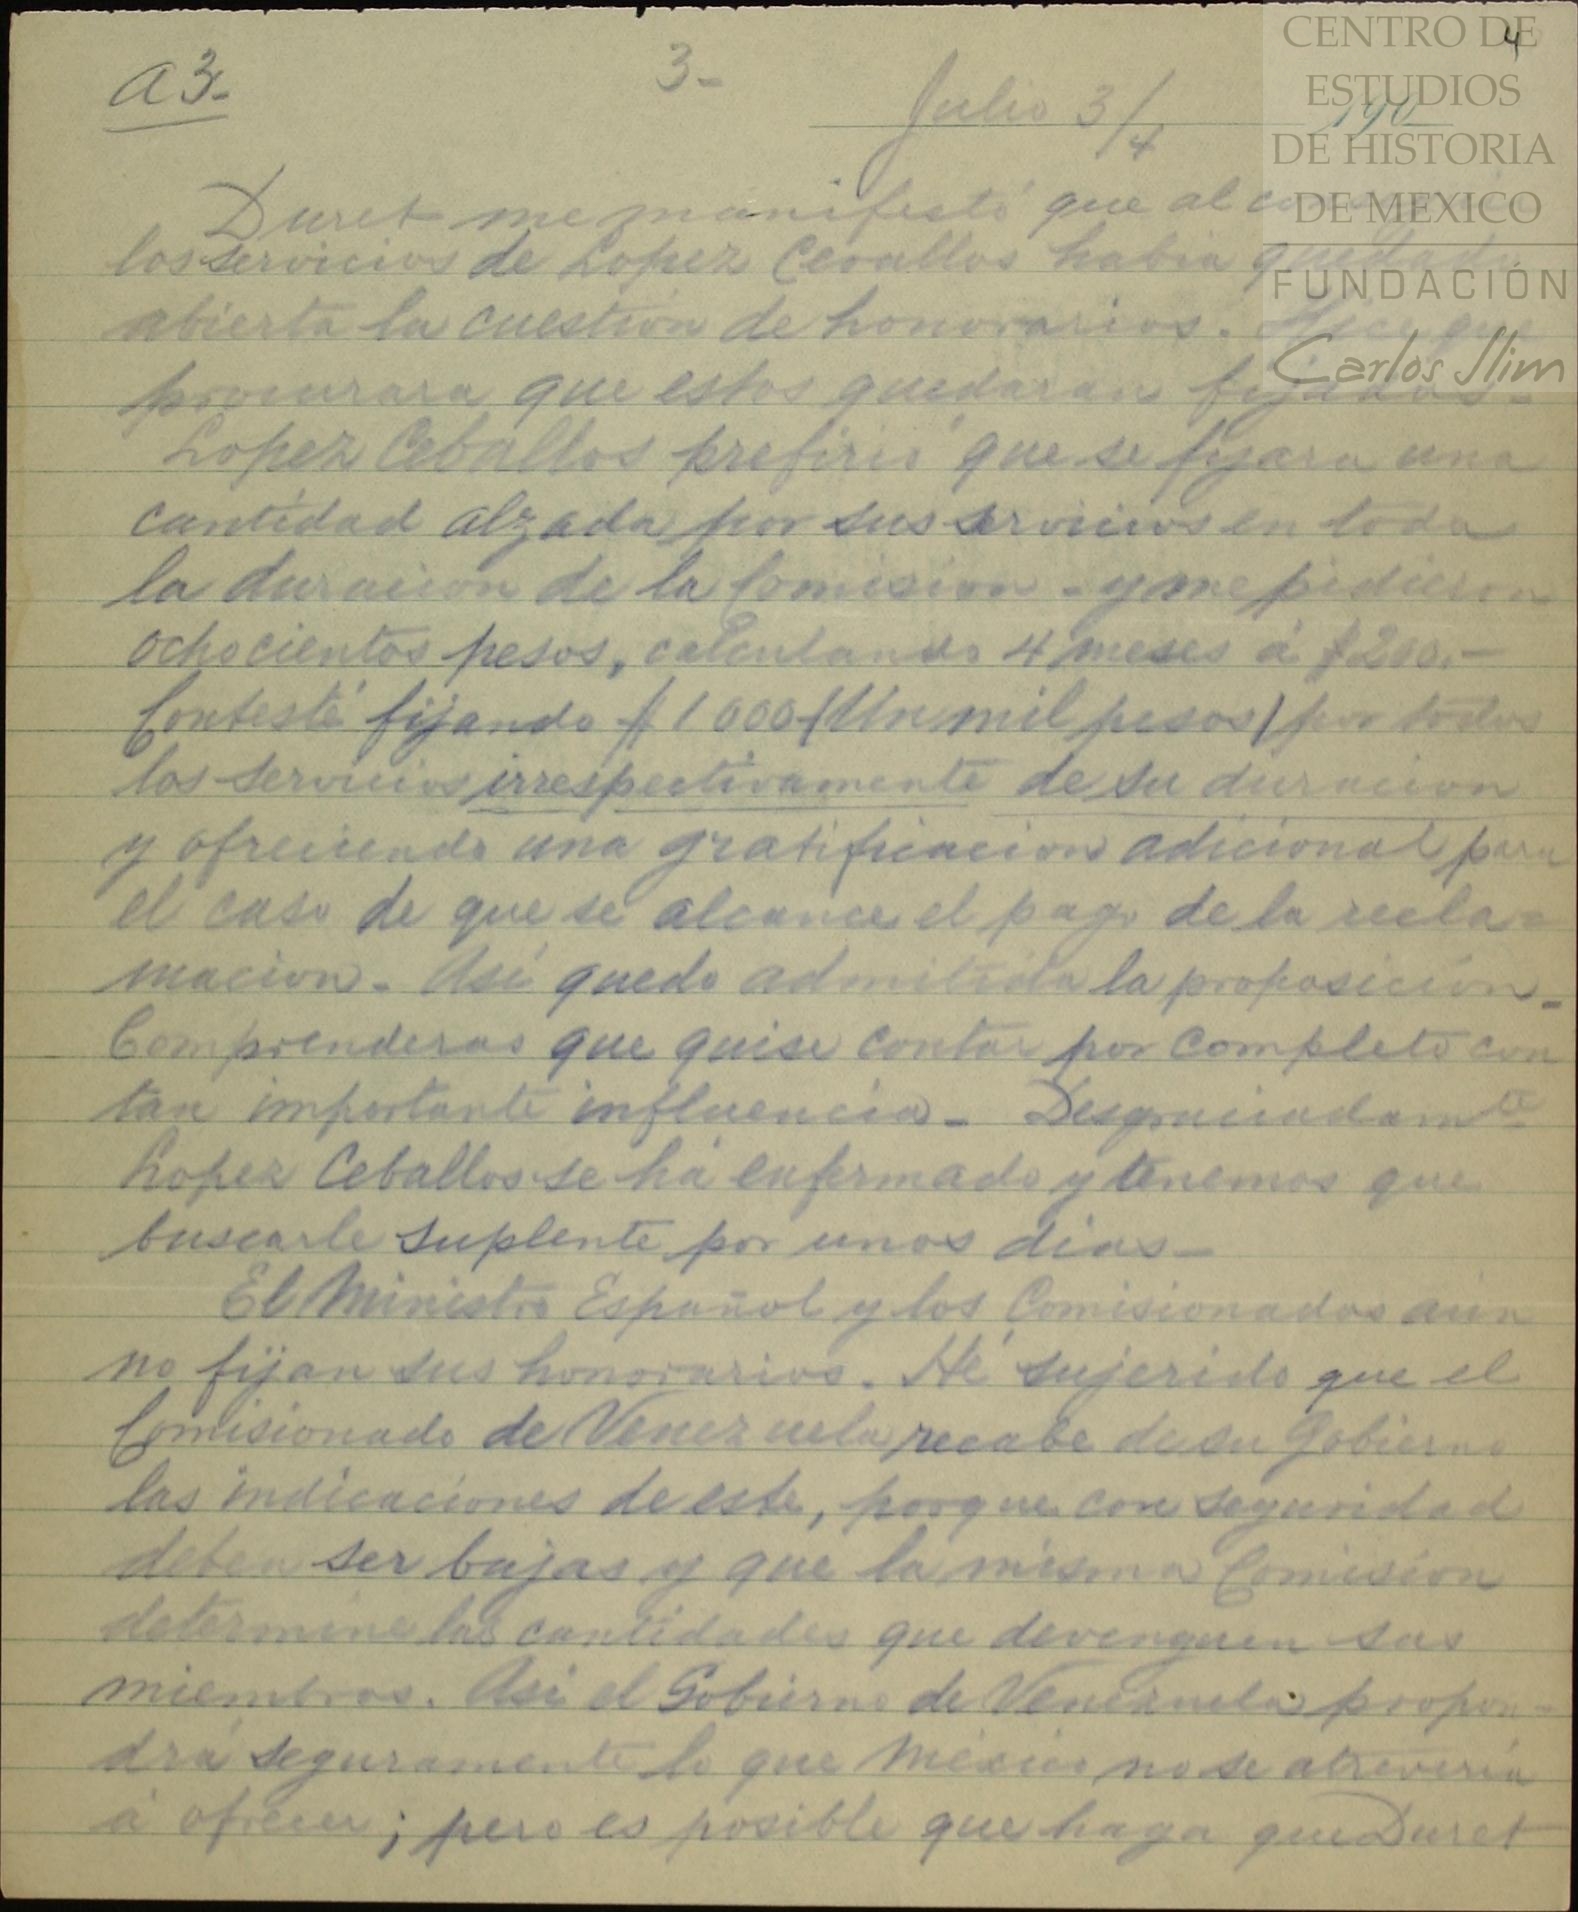 a 3-
3-
4
190
Julio 3/4
Duret me manifestó que al
los servicios de Lopez Cevallos habia quedado
abierta la cuestion de honorarios. Hice que
procurara que estos quedaran fijados-
Lopez Ceballos prefirió que se fijara una
cantidad alzada por sus servicios en toda
la duracion de la Comision - y me pidieron
ochocientos pesos, calculando 4 meses á $200.-
Contesté fijando $1000 (Un mil pesos) por todos
los servicios irrespectivamente de su duracion
y ofreciendo una gratificacion adicional para
el caso de que se alcance el pago de la recla-
macion. Asi quedo admitida la proposicion-
Comprenderas que quise contar por completo con
tan importante influencia- Desgraciadamte
Lopez Ceballos se há enfermado y tenemos que
buscarle suplente por unos dias-
El Ministro Español y los Comisionados aún
no fijan sus honorarios. Hé sujerido que el
Comisionado de Venezuela recabe de su Gobierno
las indicaciones de este, porque con seguridad
deben ser bajas y que la misma Comision
determine las cantidades que devenguen sus
miembros. Asi el Gobierno de Venezuela propon-
drá seguramente lo que México no se atreveria
á ofrecer; pero es posible que haga que Duret
CENTRO DE
ESTUDIOS
DE HISTORIA
DE MEXICO
FUNDACIÓN
Carlos Slim